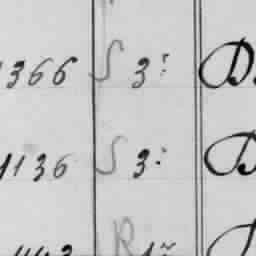 1366 S 3: D.
1136 S 3: D
R